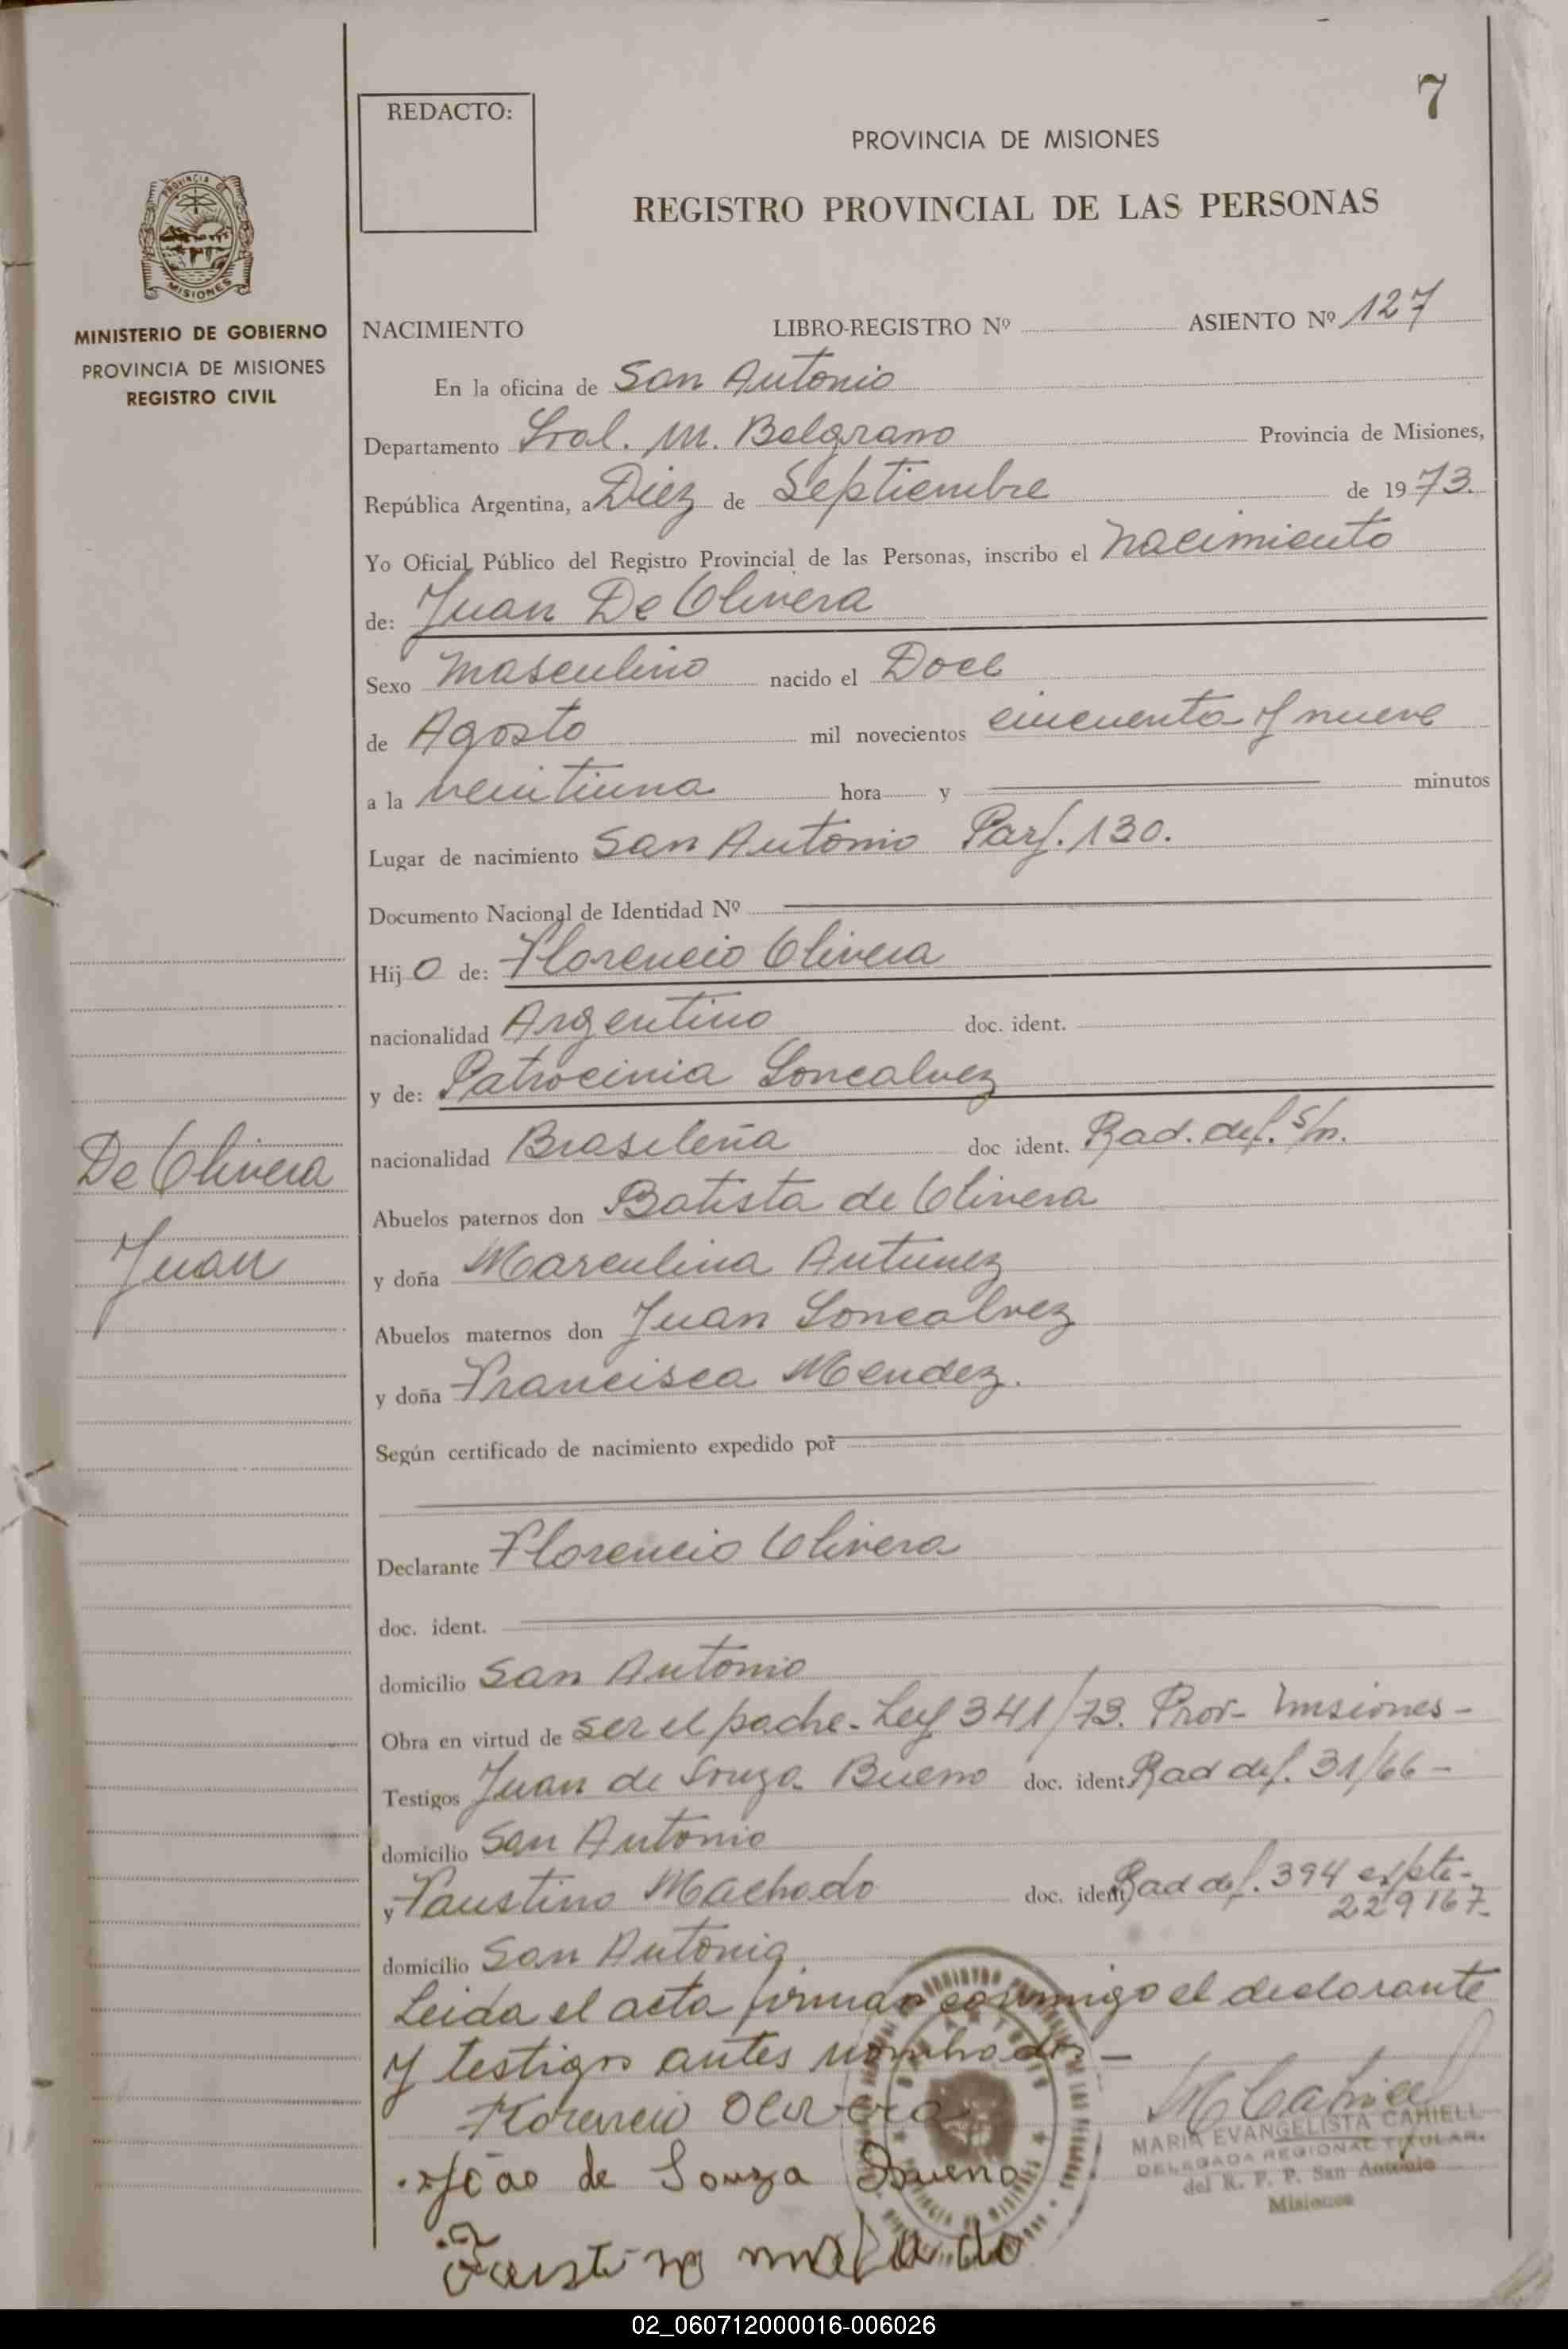 7
REDACTO:
PROVINCIA DE MISIONES
REGISTRO PROVINCIAL DE LAS PERSONAS
PROVINCIA DE
MISIONES
MINISTERIO DE GOBIERNO
PROVINCIA DE MISIONES
REGISTRO CIVIL
NACIMIENTO LIBRO-REGISTRO Nº ASIENTO Nº 127
En la oficina de San Antonio
Departamento Gral. M. Belgrano Provincia de Misiones,
República Argentina, a Diez de Septiembre de 1973.
Yo Oficial Público del Registro Provincial de las Personas, inscribo el nacimiento
de: Juan De Olivera
Sexo masculino nacido el Doce
de Agosto mil novecientos cincuenta y nueve
a la veintiuna hora y minutos
Lugar de nacimiento San Antonio Parj. 130.
Documento Nacional de Identidad Nº
Hijo de: Florencio Olivera
nacionalidad Argentino doc. ident.
y de: Patrocinia Goncalvez
nacionalidad Brasileña doc ident. Rad. def. S/n.
De Olivera
Juan
Abuelos paternos don Batista de Olivera
y doña Marculina Antunez
Abuelos maternos don Juan Goncalvez
y doña Francisca Mendez.
Según certificado de nacimiento expedido por
Declarante Florencio Olivera
doc. ident.
domicilio San Antonio
Obra en virtud de ser el padre - Ley 341/73. Prov - Misiones -
Testigos Juan de Souza Bueno doc. ident. Rad def. 31/66 -
domicilio San Antonio
y Faustino Machado doc. ident. Rad def. 394 expte -
229167 -
domicilio San Antonio
Leida el acta firman conmigo el declarante
y testigos antes nombrados -
Florencio Olivera
João de Souza Bueno
MARIA EVANGELISTA CAHIELL
DELEGADA REGIONAL TITULAR.
del R. P. P. San Antonio
Misiones
02_060712000016-006026